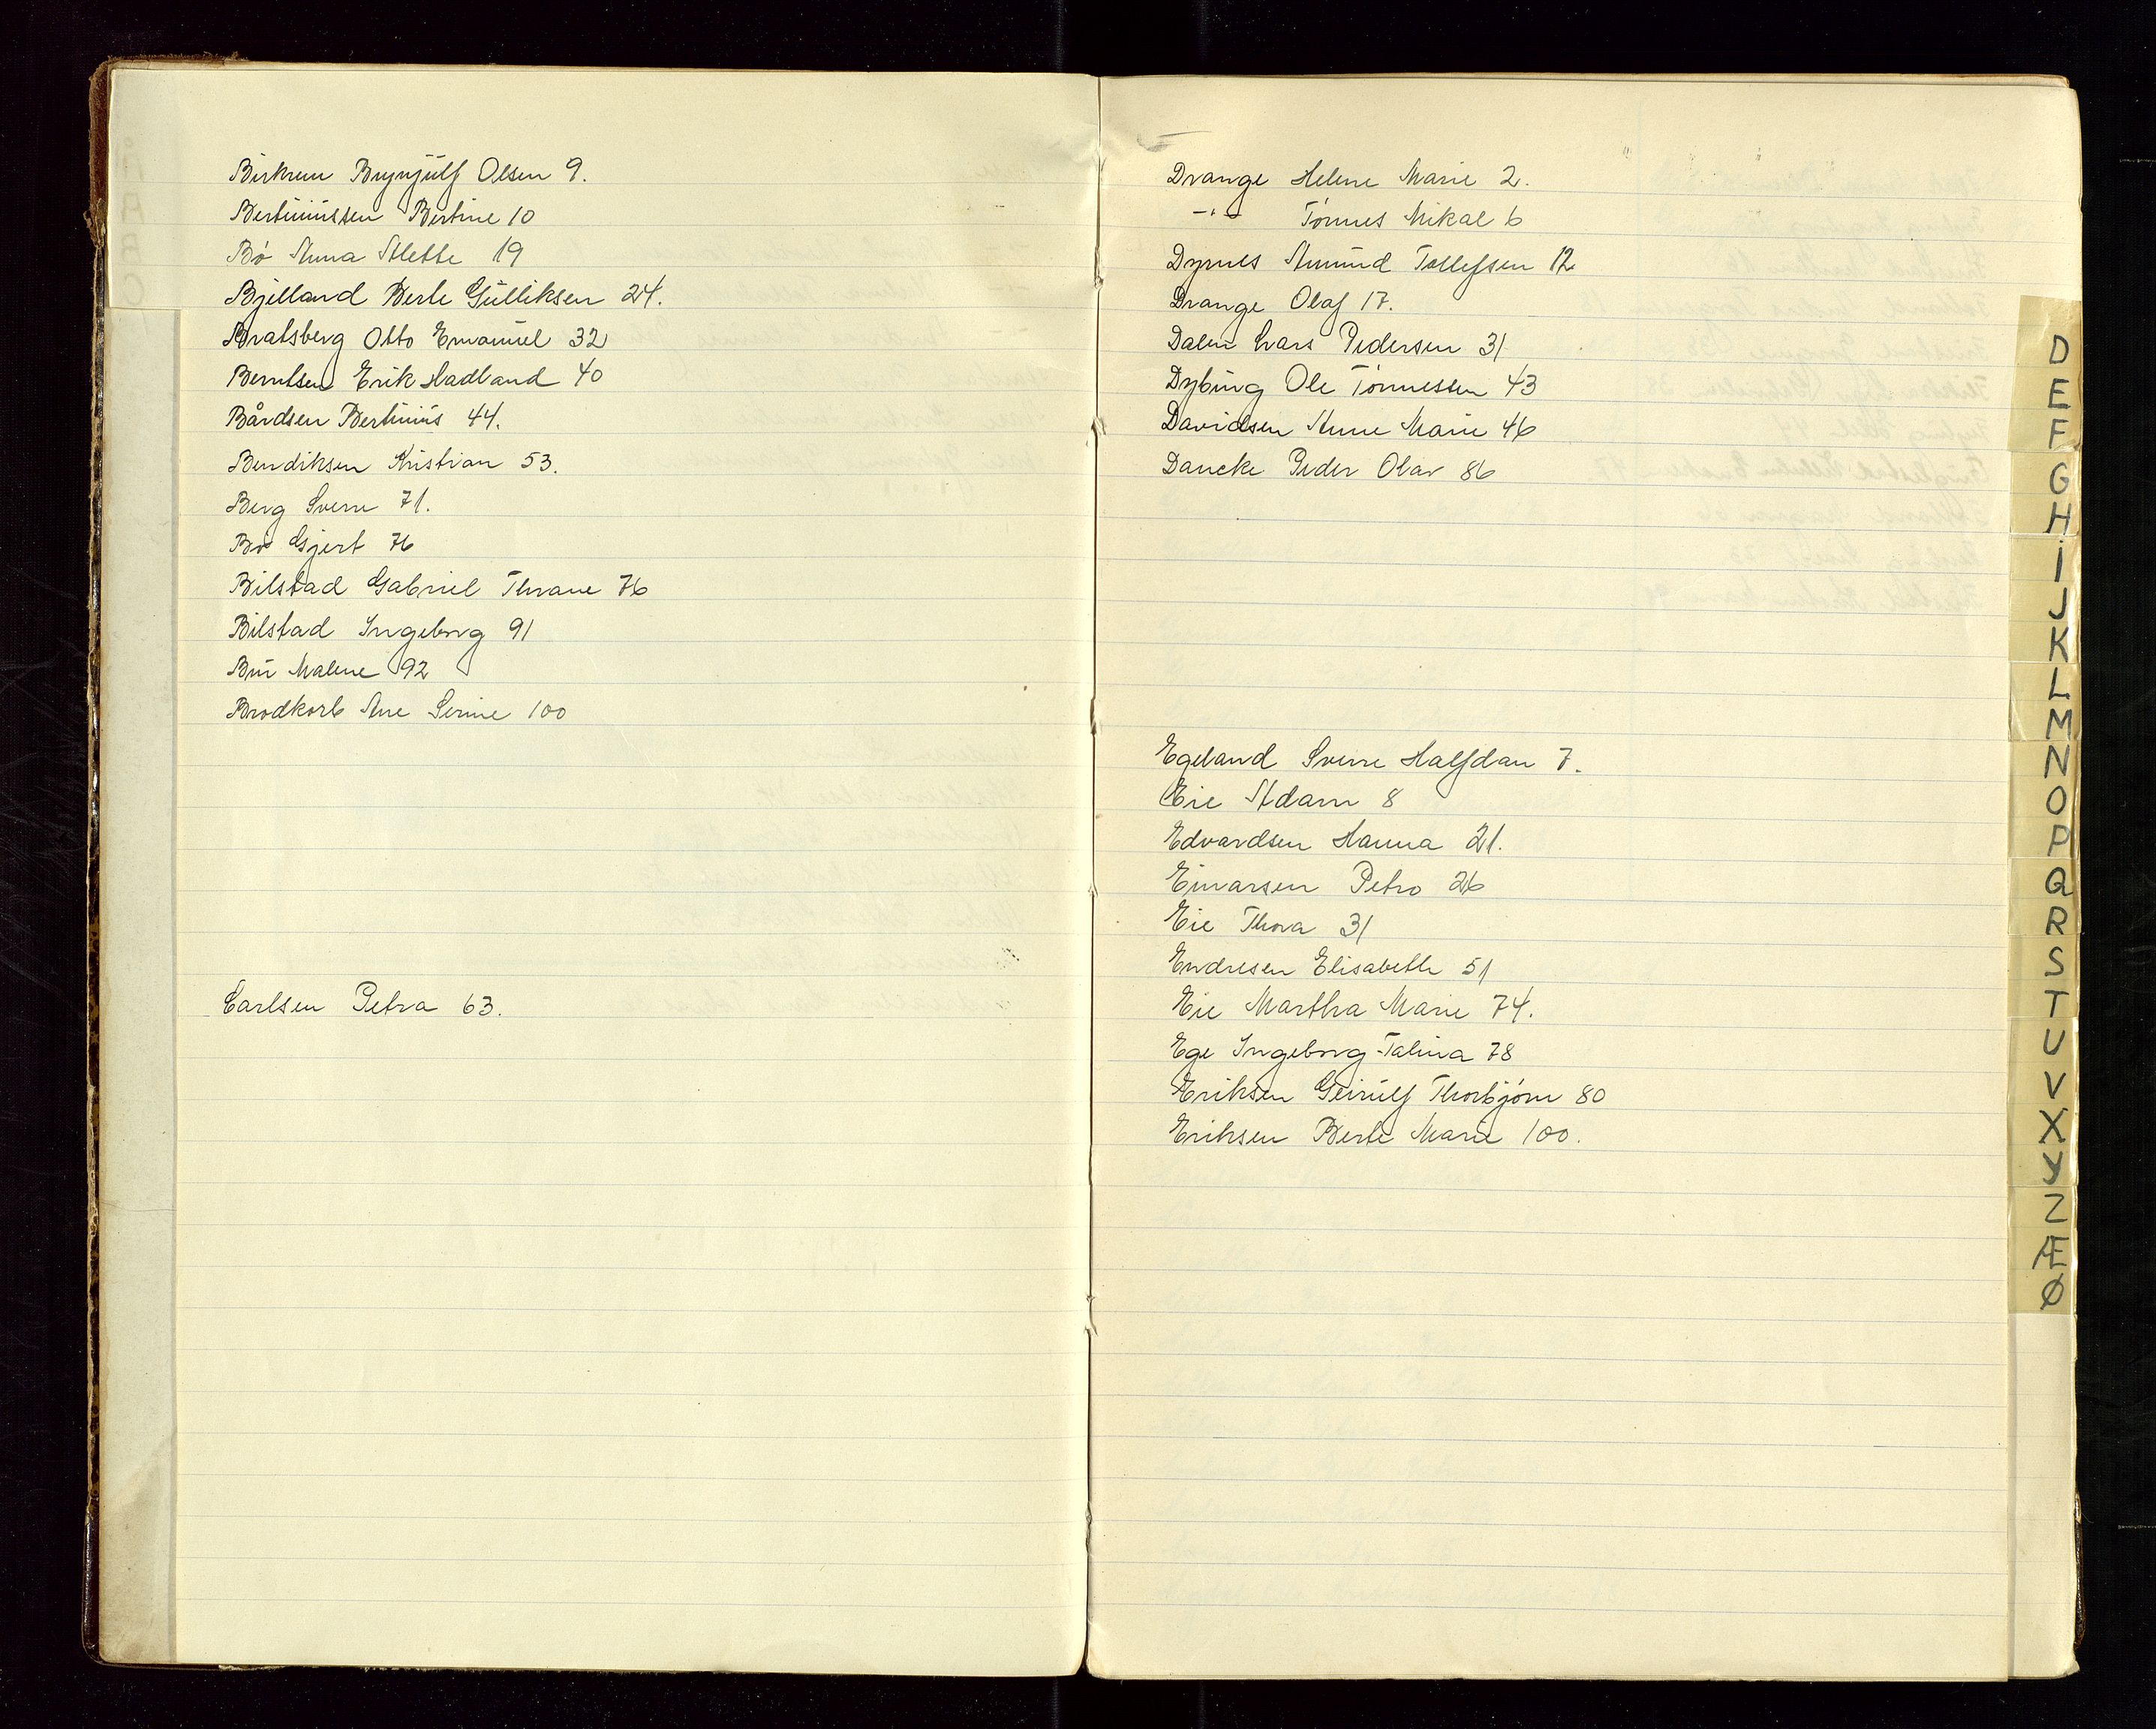 Birkrem Brynjulf Olsen 9.
Bertinussen Bertine 10
Bö Anna Alette 19
Bjelland Berte Gulliksen 24.
Bratsberg Otto Emanuel 32
Berntsen Erik Hadland 40
Bårdsen Bertinius 44.
Bendiksen Kristian 53.
Berg Sverre 71.
Bö Gjert 76
Bilstad Gabriel Thrane 76
Bilstad Ingeborg 91
Bui Malene 92
Brodkorb Ane Serine 100
Carlsen Petra 63.
Drange Helene Marie 2.
-"- Tönnes Mikal 6
Dyrnes Amund Tollefsen 12
Drange Olaf 17.
Dalen Lars Pedersen 31
Dybing Ole Tönnessen 43
Davidsen Anne Marie 46
Dancke Peder Olav 86
Egeland Sverre Halfdan 7.
Eie Adam 8
Edvardsen Hanna 21.
Einarsen Petro 26
Eie Thora 31
Endresen Elisabeth 51
Eie Martha Marie 74.
Ege Ingeborg Talina 78
Eriksen Geirulf Thorbjörn 80
Eriksen Berte Marie 100.
D
E
F
G
H
I
J
K
L
M
N
O
P
Q
R
S
T
U
V
X
Y
Z
Æ
Ø